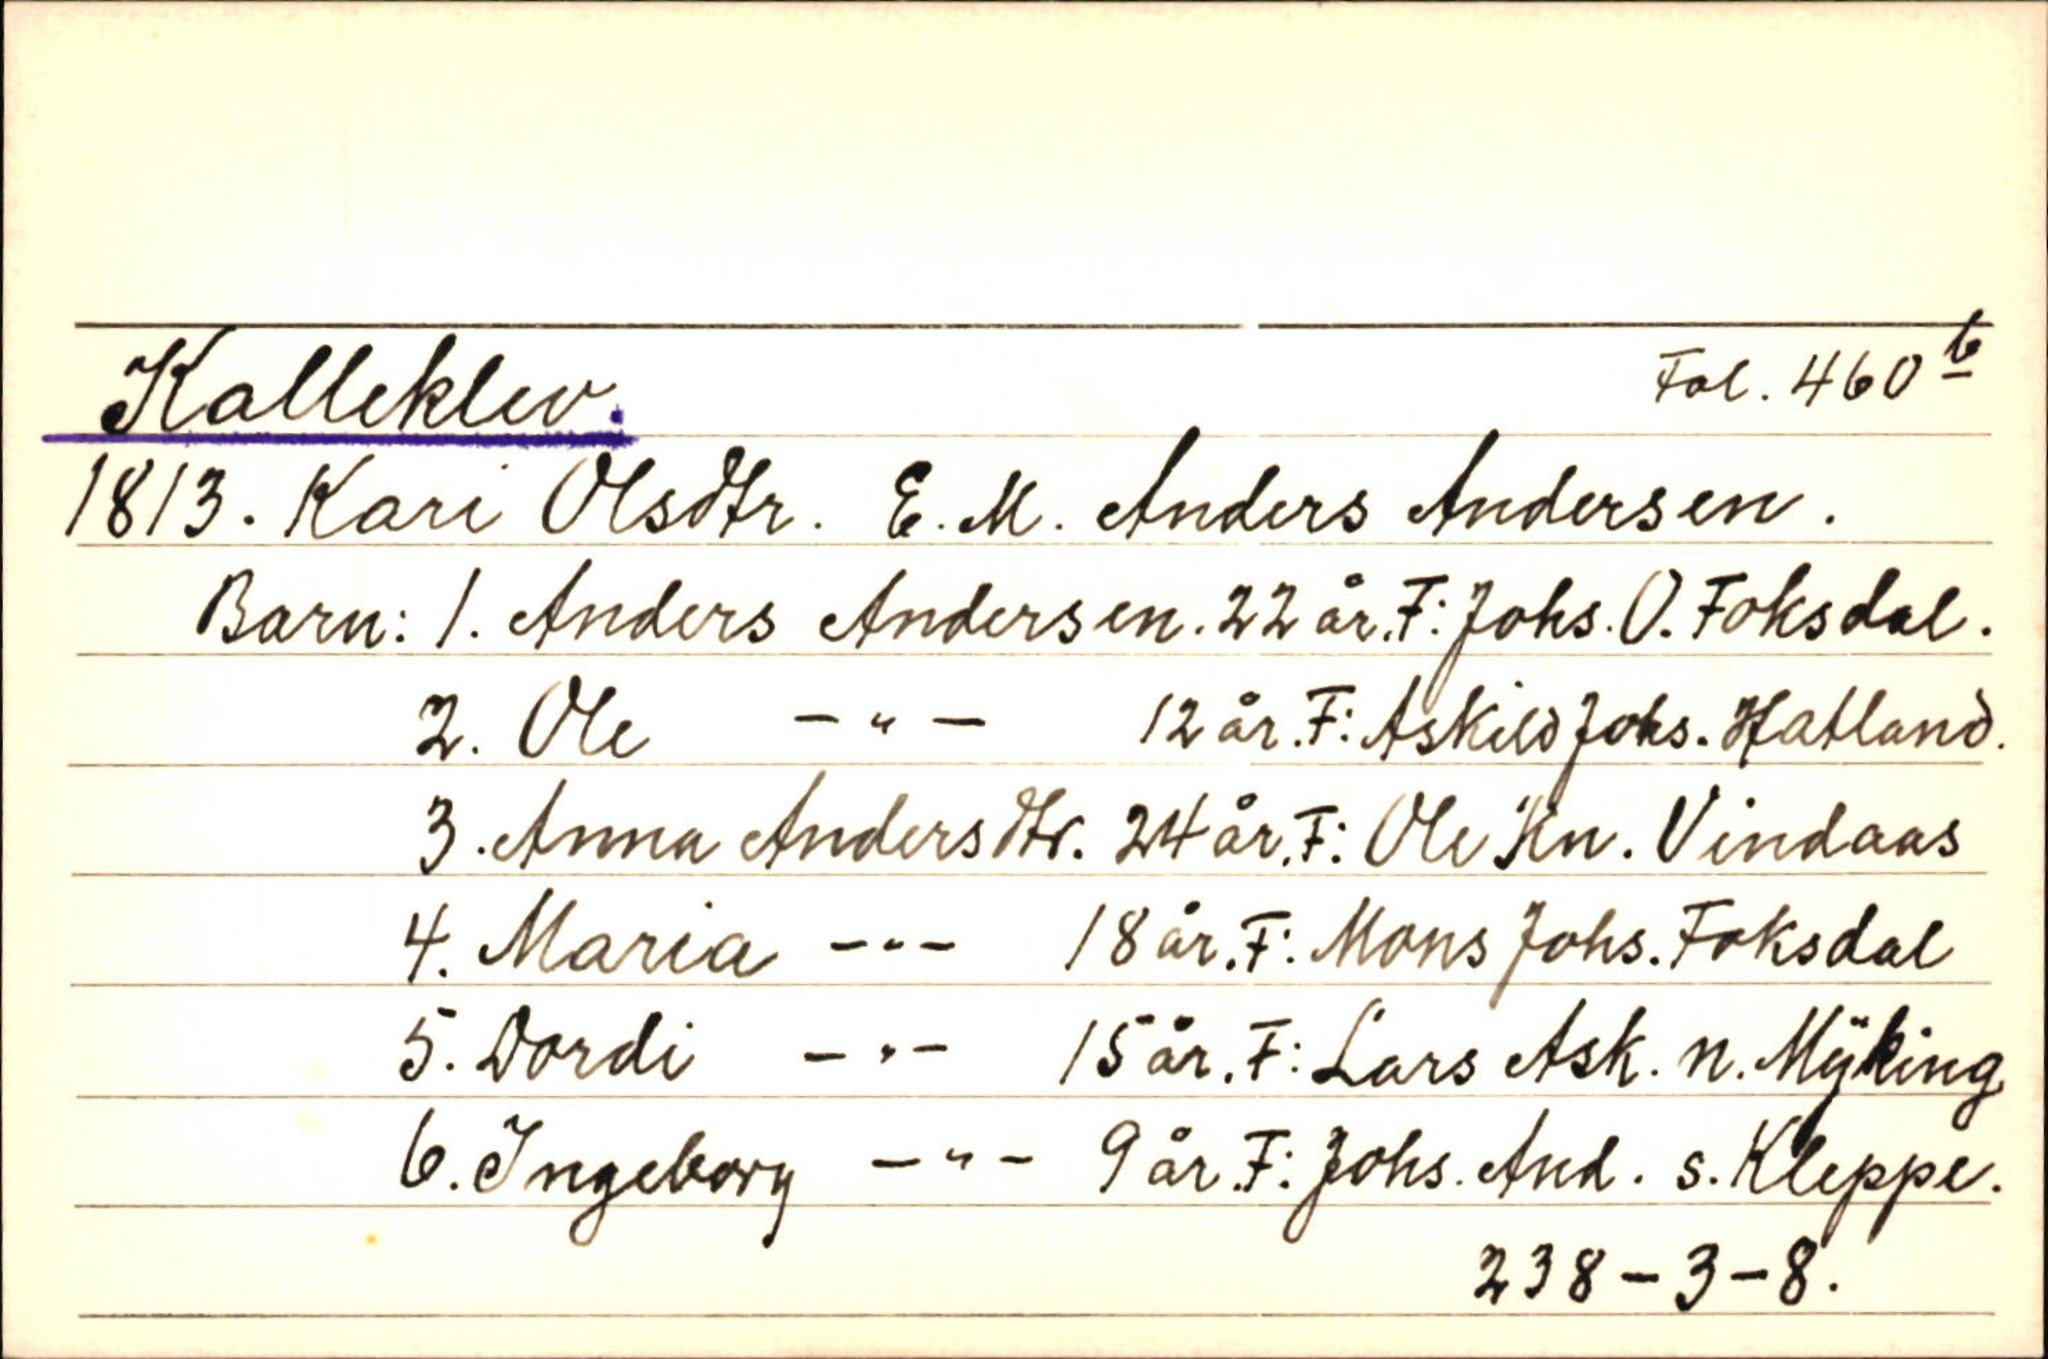 Kalleklev. Fol. 460 b
1813. Kari Olsdtr. E. M. Anders Andersen.
Barn: 1. Anders Andersen. 22 år. F: Johs. O. Foksdal.
2. Ole — " — 12 år. F: Askild Johs. Hatland.
3. Anna Andersdtr. 24 år. F: Ole Kn. Vindaas
4. Maria — " — 18 år. F: Mons Johs. Foksdal
5. Dordi — " — 15 år. F: Lars Ask. n. Mÿking
6. Ingeborg — " — 9 år. F: Johs. And. s. Kleppe.
238 – 3 – 8.